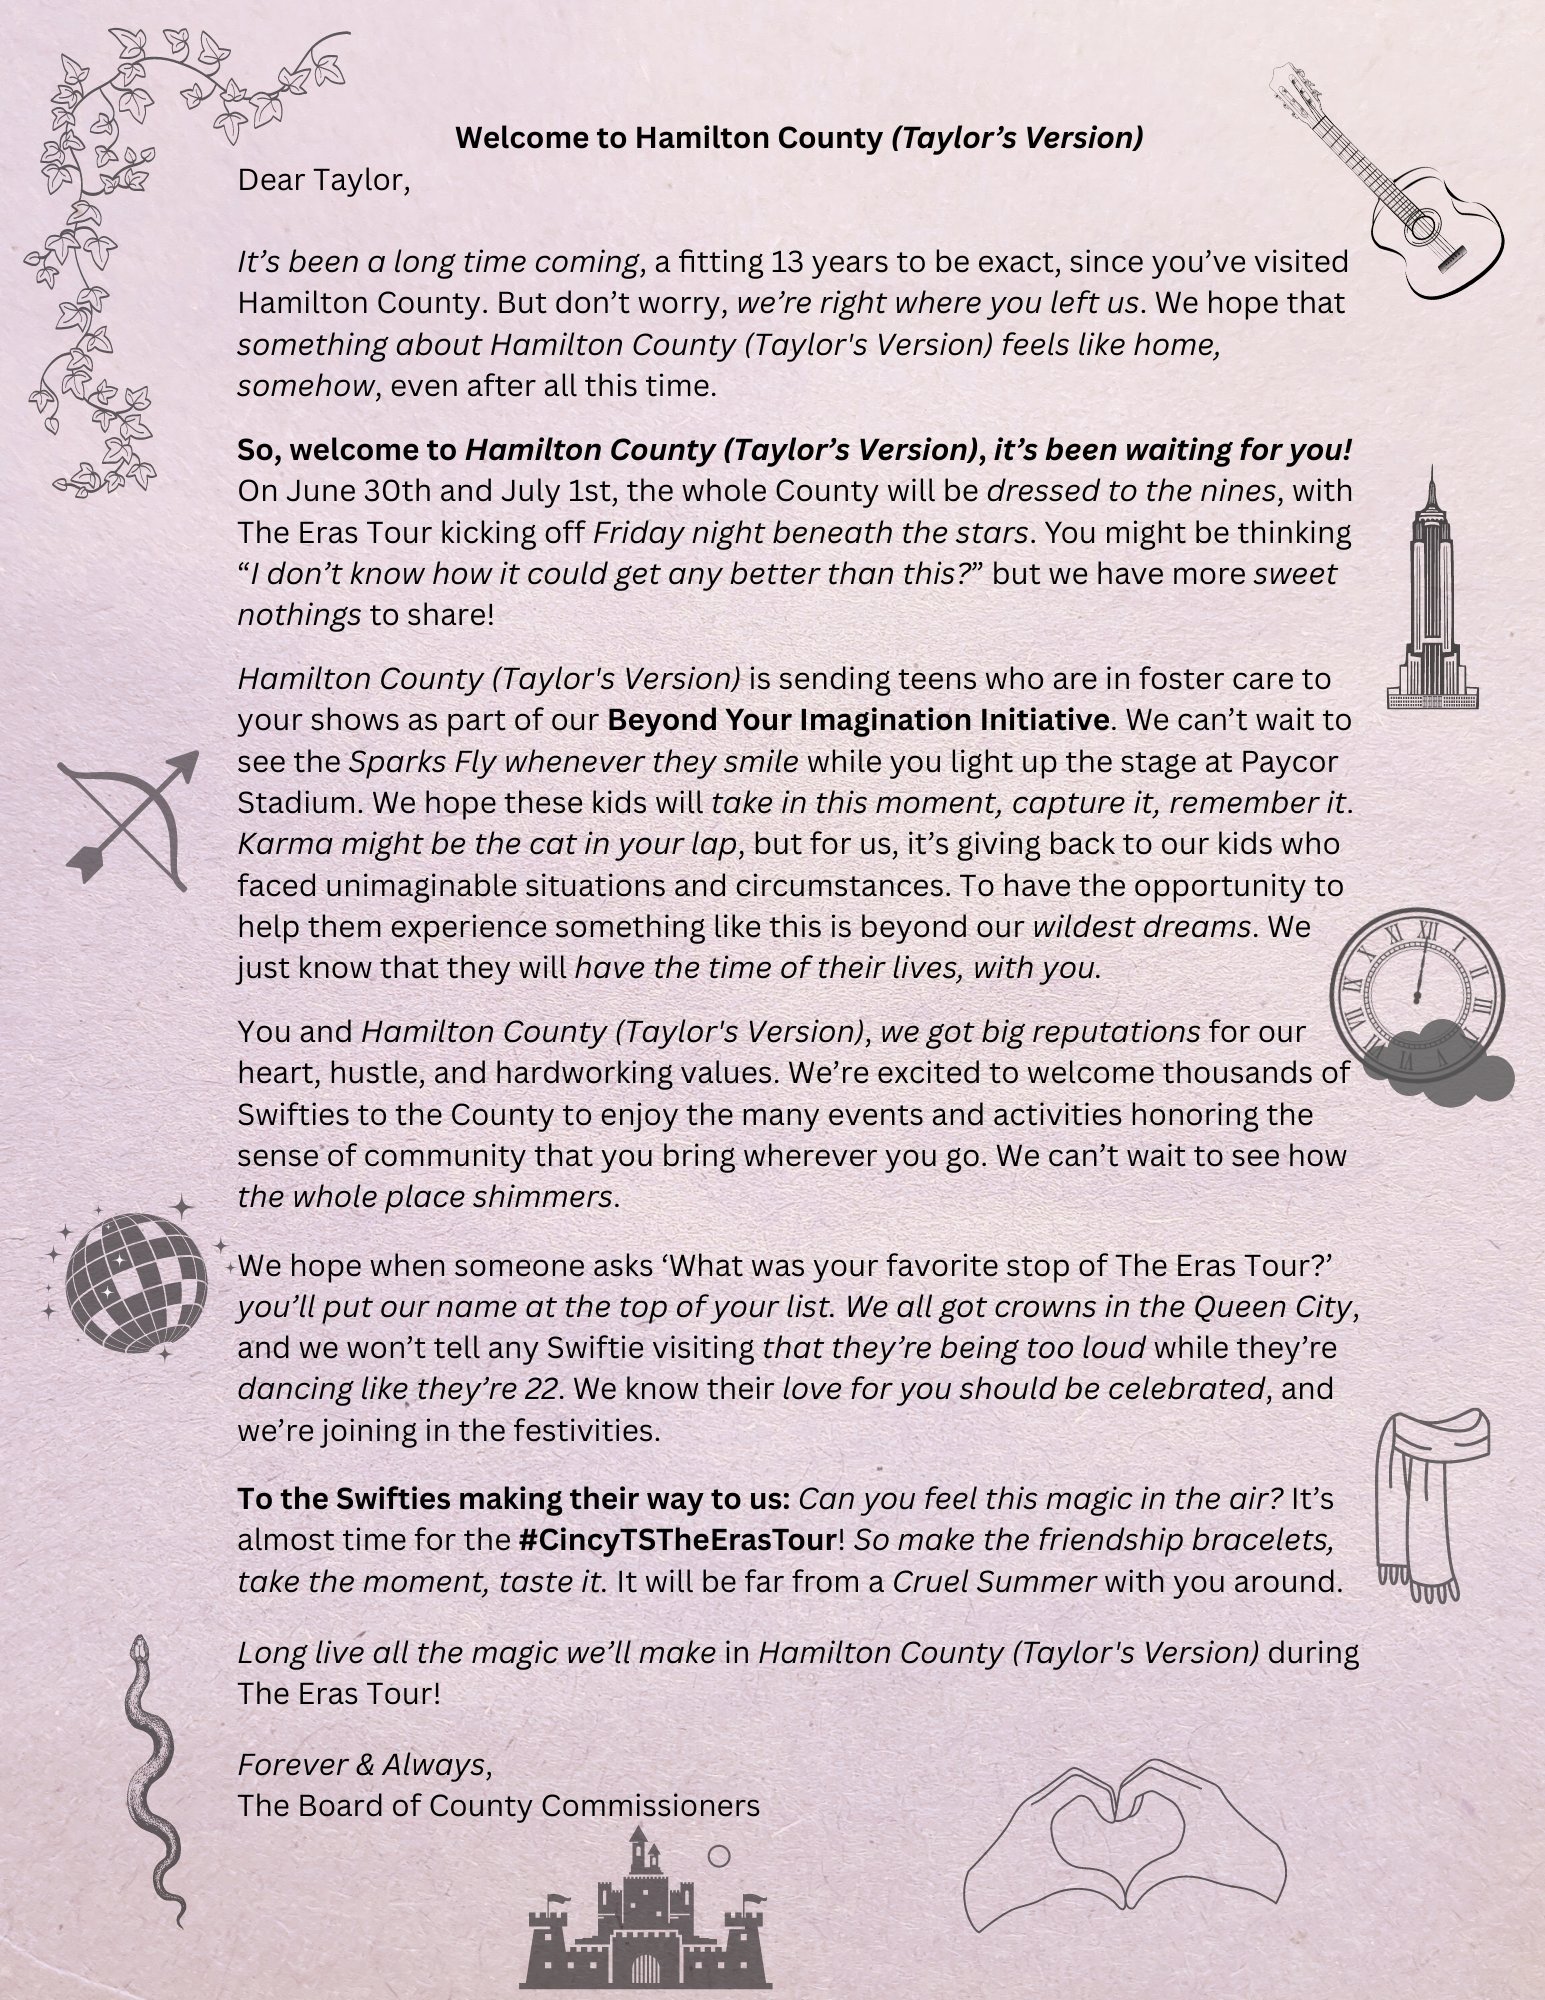 Welcome to Hamilton County (Taylor’s Version)
Dear Taylor,
It’s been a long time coming, a fitting 13 years to be exact, since you’ve visited
Hamilton County. But don’t worry, we’re right where you left us. We hope that
something about Hamilton County (Taylor's Version) feels like home,
somehow, even after all this time.
So, welcome to Hamilton County (Taylor’s Version), it’s been waiting for you!
On June 30th and July 1st, the whole County will be dressed to the nines, with
The Eras Tour kicking off Friday night beneath the stars. You might be thinking
“I don’t know how it could get any better than this?” but we have more sweet
nothings to share!
Hamilton County (Taylor's Version) is sending teens who are in foster care to
your shows as part of our Beyond Your Imagination Initiative. We can’t wait to
see the Sparks Fly whenever they smile while you light up the stage at Paycor
Stadium. We hope these kids will take in this moment, capture it, remember it.
Karma might be the cat in your lap, but for us, it’s giving back to our kids who
faced unimaginable situations and circumstances. To have the opportunity to
help them experience something like this is beyond our wildest dreams. We
just know that they will have the time of their lives, with you.
You and Hamilton County (Taylor's Version), we got big reputations for our
heart, hustle, and hardworking values. We’re excited to welcome thousands of
Swifties to the County to enjoy the many events and activities honoring the
sense of community that you bring wherever you go. We can’t wait to see how
the whole place shimmers.
We hope when someone asks ‘What was your favorite stop of The Eras Tour?’
you’ll put our name at the top of your list. We all got crowns in the Queen City,
and we won’t tell any Swiftie visiting that they’re being too loud while they’re
dancing like they’re 22. We know their love for you should be celebrated, and
we’re joining in the festivities.
To the Swifties making their way to us: Can you feel this magic in the air? It’s
almost time for the #CincyTSTheErasTour! So make the friendship bracelets,
take the moment, taste it. It will be far from a Cruel Summer with you around.
Long live all the magic we’ll make in Hamilton County (Taylor's Version) during
The Eras Tour!
Forever & Always,
The Board of County Commissioners
XII
I
II
III
V
VI
VII
VIII
IX
X
XI